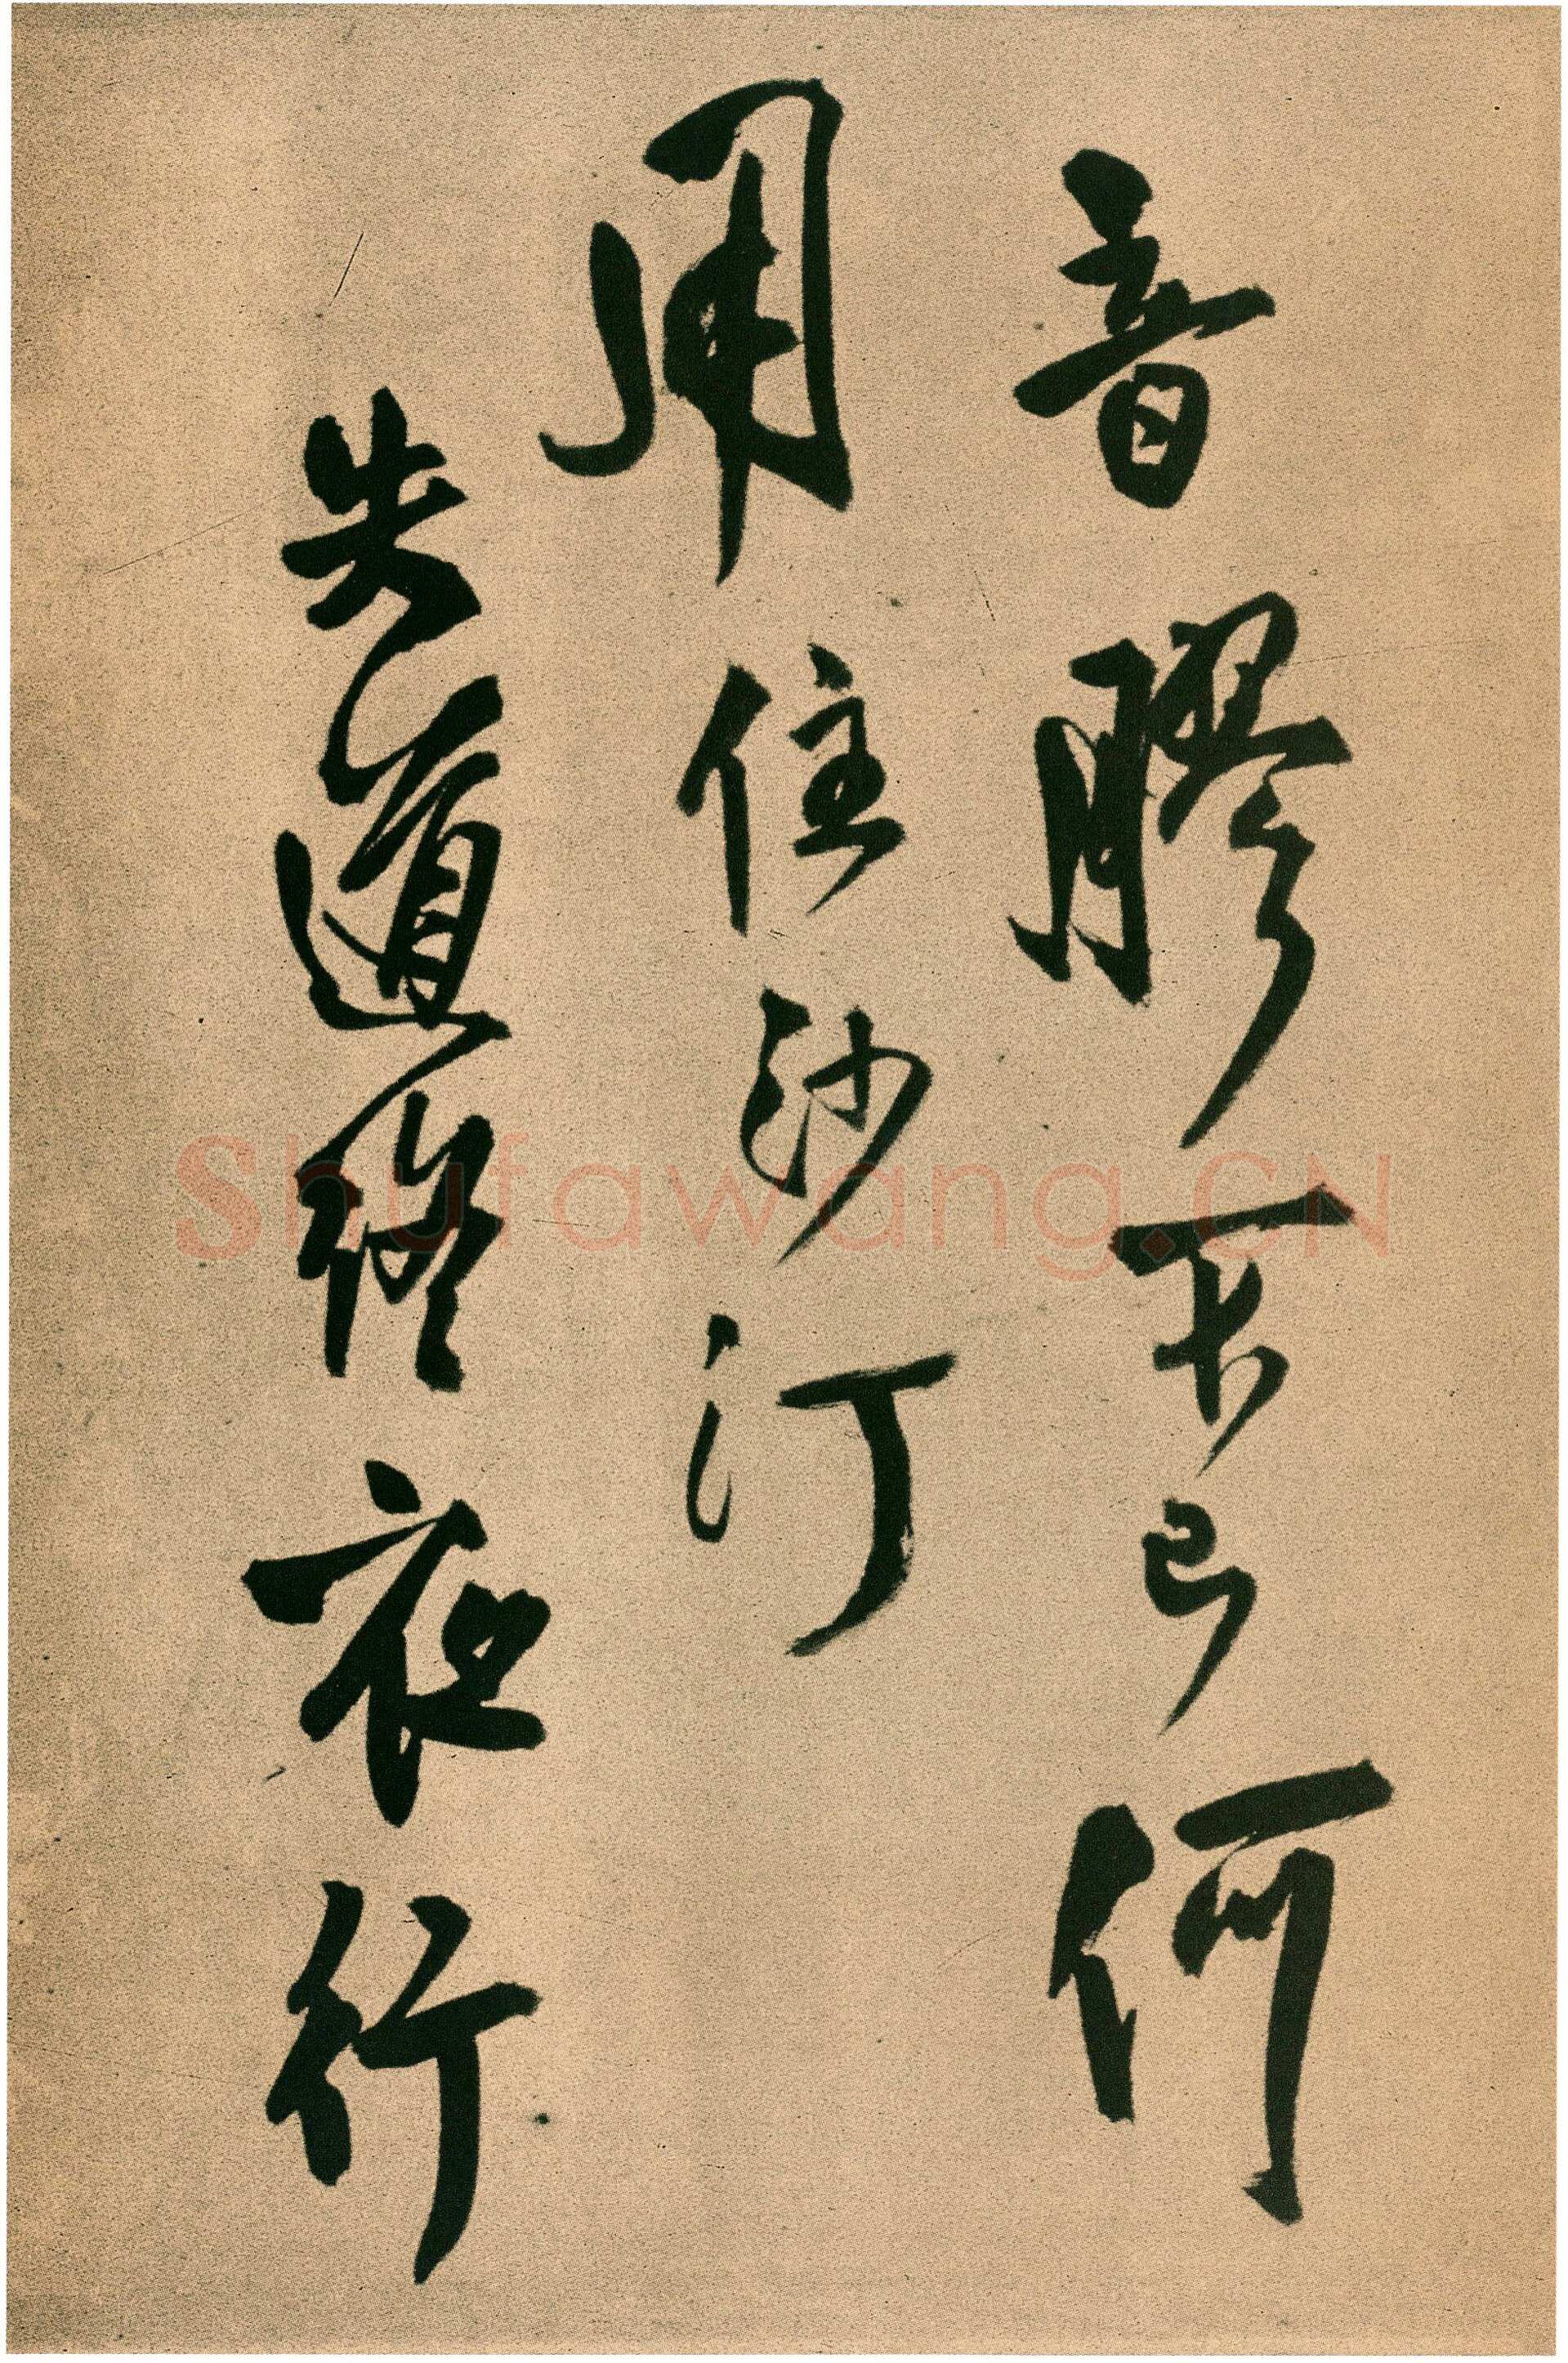 音膠不已何
用住沙汀
失道夜行
Shufawang.CN